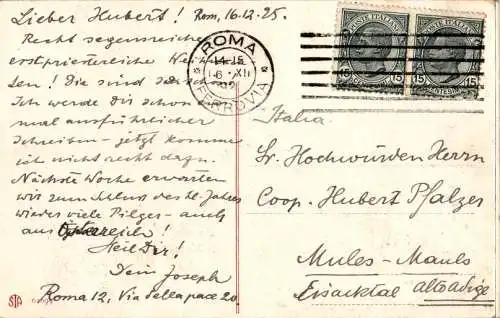 Lieber Hubert! Rom, 16.12.25.
Recht segensreiche
erstpriesterliche Weih
ten! Die sind
Ich werde Dir schon
mal ausführlicher
schreiben - jetzt komme
ich nicht recht dazu.
Nächste Woche erwarten
wir zum Schluss des hl. Jahres
wieder viele Pilger - auch
aus Österreich!
Heil Dir!
Dein Joseph
Roma 12, Via della pace 20.
ROMA
14-15
16 XII
FERROVIA
POSTE ITALIANE
15 CENTESIMI 15
POSTE ITALIANE
15 CENTESIMI 15
Italia
Sr. Hochwürden Herrn
Coop. Hubert Pfalzer
Mules - Mauls
Eisacktal alto adige
STA